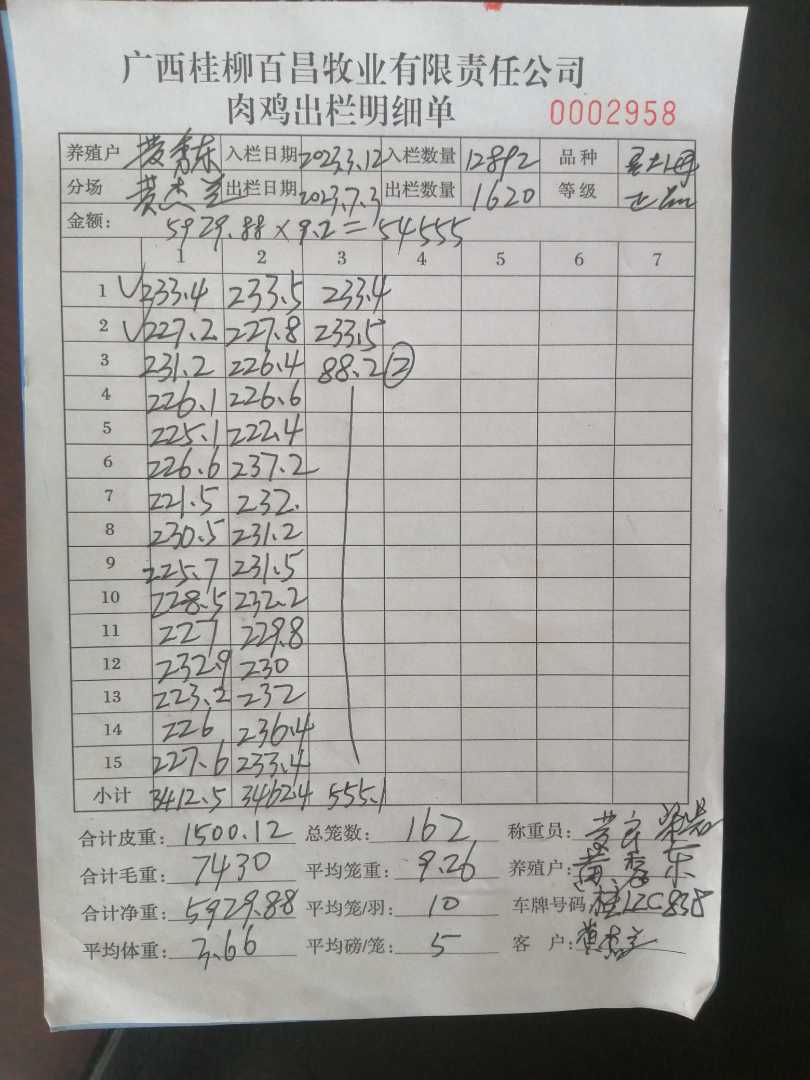 广西桂柳百昌牧业有限责任公司
肉鸡出栏明细单 0002958
养殖户 黄秀东 入栏日期 2023.3.12 入栏数量 12892 品种
分场 黄杰 出栏日期 2023.7.3 出栏数量 1620 等级
金额: 5929.88×9.2=54555
1 2 3 4 5 6 7
1 √233.4 233.5 233.4
2 √227.2 227.8 233.5
3 231.2 226.4 88.2 ②
4 226.1 226.6
5 225.1 222.4
6 226.6 237.2
7 221.5 232.
8 230.5 231.2
9 225.7 231.5
10 228.5 232.2
11 227 229.8
12 232.9 230
13 223.2 232
14 226 236.4
15 227.6 233.4
小计 3412.5 3462.4 555.1
合计皮重: 1500.12 总笼数: 162 称重员:
合计毛重: 7430 平均笼重: 9.26 养殖户: 黄秀东
合计净重: 5929.88 平均笼/羽: 10 车牌号码 桂12C838
平均体重: 3.66 平均磅/笼: 5 客 户: 黄杰